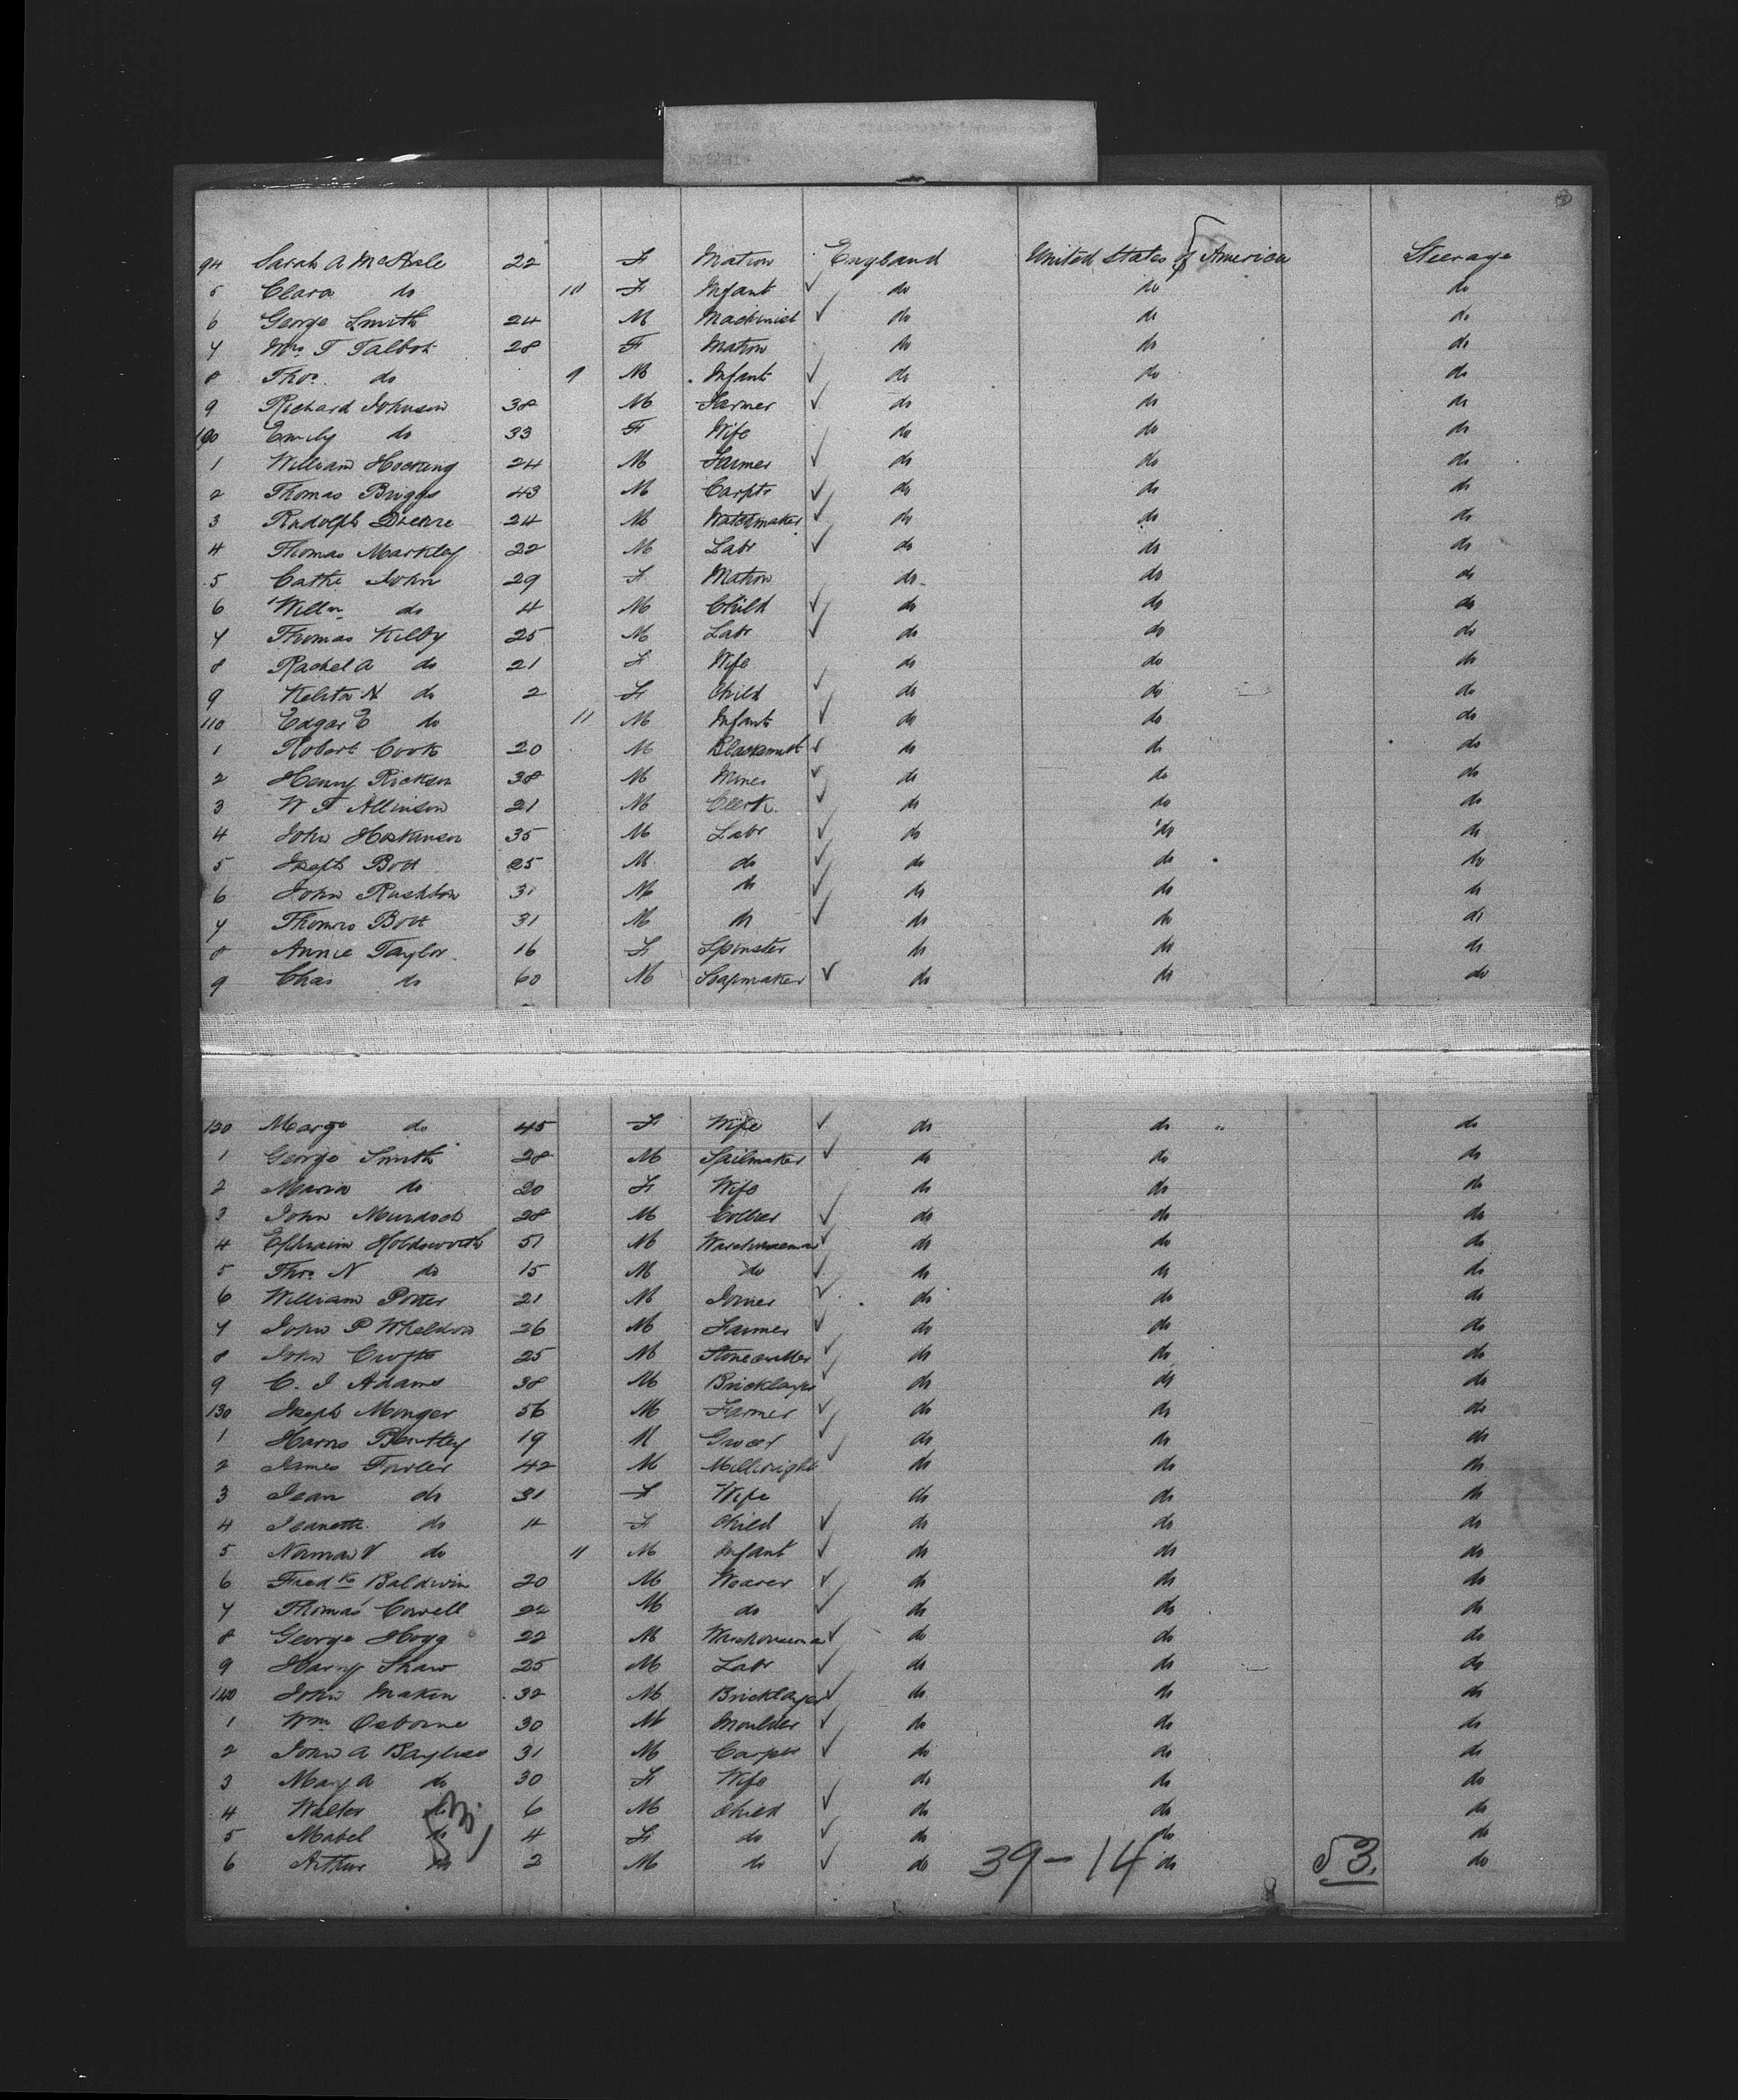 94 Sarah A McHale 22 F Matron England United States of America Steerage
5 Clara do 10 F Infant do do do
6 George Smith 24 M Machinist do do do
7 Mrs T Talbot 28 F Matron do do do
8 Thos. do 9 M Infant do do do
9 Richard Johnson 38 M Farmer do do do
100 Emily do 33 F Wife do do do
1 William Hocking 24 M Farmer do do do
2 Thomas Briggs 43 M Carptr do do do
3 Rudolph 24 M Watchmaker do do do
4 Thomas Markley 22 M Labr do do do
5 Cathe John 29 F Matron do do do
6 Willm do 4 M Child do do do
7 Thomas Kilby 25 M Labr do do do
8 Rachel A do 21 F Wife do do do
9 N do 2 F Child do do do
110 Edgar E do 11 M Infant do do do
1 Robert Cook 20 M Blacksmith do do do
2 Henry Rickson 38 M Miner do do do
3 W F Allinson 21 M Clerk do do do
4 John Hoskinson 35 M Labr do do do
5 Joseph Bott 25 M do do do do
6 John Rushton 31 M do do do do
7 Thomas Bott 31 M do do do do
8 Annie Taylor 16 F Spinster do do do
9 Chas do 60 M Soapmaker do do do
120 Margt do 45 F Wife do do do
1 George Smith 28 M Sailmaker do do do
2 Maria do 20 F Wife do do do
3 John Murdoch 28 M Collier do do do
4 Ephraim Holdsworth 51 M Warehouseman do do do
5 Thos N do 15 M do do do do
6 William Potter 21 M Joiner do do do
7 John P Wheldon 26 M Farmer do do do
8 John Crofts 25 M do do do
9 C. J Adams 38 M Bricklayer do do do
130 Joseph Monger 56 M Farmer do do do
1 Harris Bentley 19 M Grocer do do do
2 James Fowler 42 M Millwright do do do
3 Jean do 31 F Wife do do do
4 Jeanette do 4 F Child do do do
5 Norman V do 11 M Infant do do do
6 Fredk Baldwin 20 M Weaver do do do
7 Thomas Cowell 22 M do do do do
8 George Hogg 22 M Warehouseman do do do
9 Harry Shaw 25 M Labr do do do
140 John Makin 32 M Bricklayer do do do
1 Wm Osborne 30 M Moulder do do do
2 John A Bayliss 31 M Carptr do do do
3 Mary A do 30 F Wife do do do
4 Walter do 6 M Child do do do
5 Mabel do 4 F do do do do
6 Arthur do 2 M do do do do
53
39-14 53.